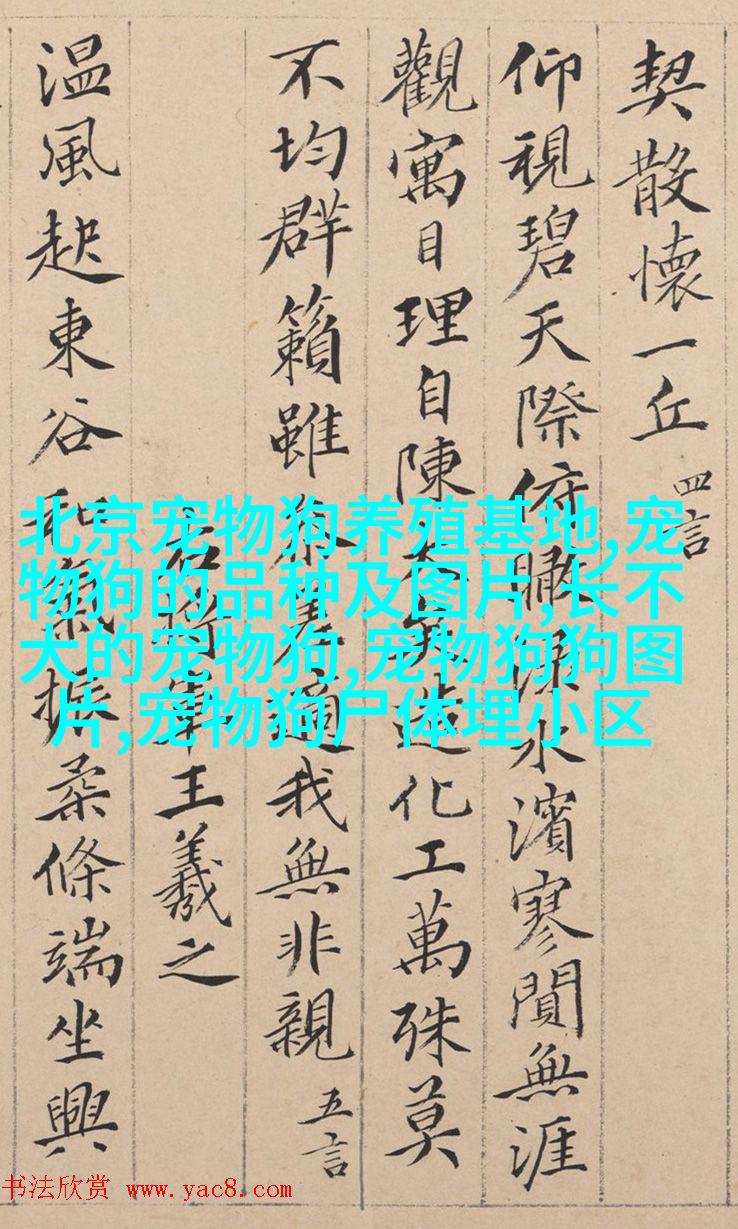 契散懷一丘 四言
仰視碧天際俯瞰淥水濱寥閴無涯
觀寓目理自陳大矣造化工萬殊莫
不均群籟雖參差適我無非親 五言
右將軍王羲之
温風起東谷和氣振柔條端坐興
北京宠物狗养殖基地,宠
物狗的品种及图片,长不
大的宠物狗,宠物狗狗图
片,宠物狗尸体埋小区
书法欣赏 www.yac8.com